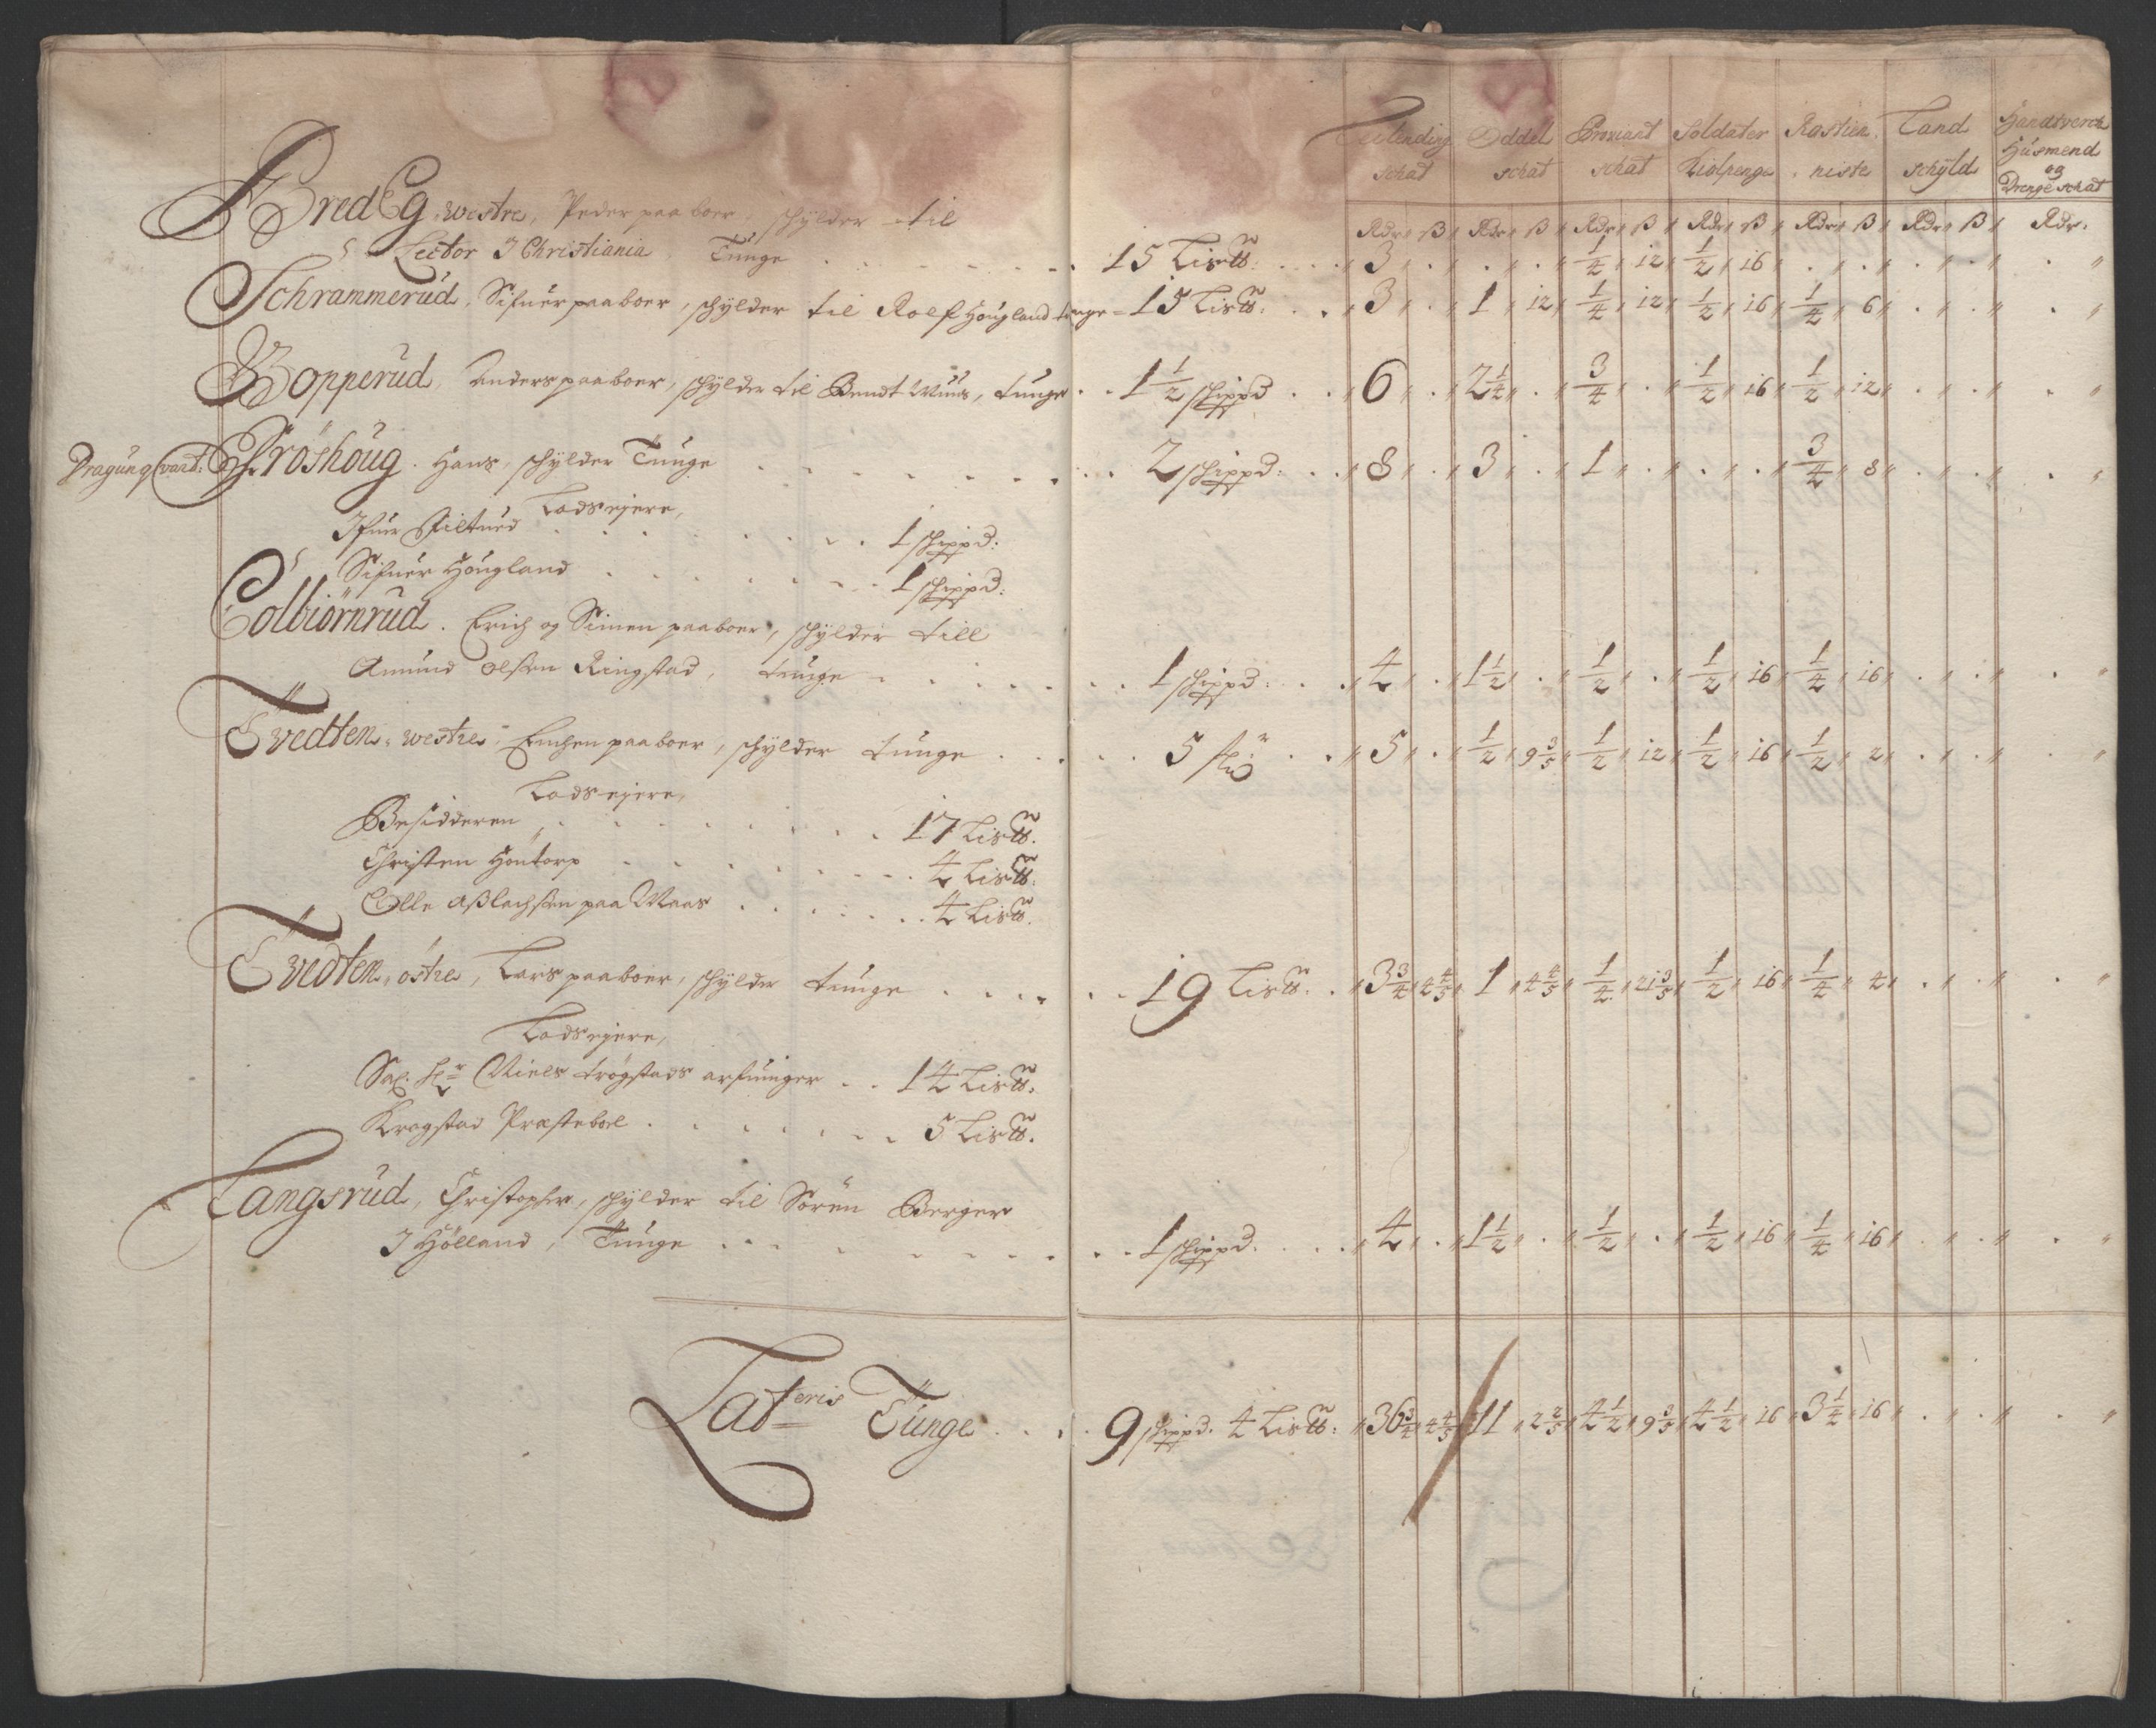 Leilending schat | Oddel schat | Proviant schat | Soldater Kiolpenge | Rostien niste | Land schyld | Handtverck Husmend og Drenge schat
Rdr ß | Rdr ß | Rdr ß | Rdr ß | Rdr ß | Rdr ß | Rdr.
Bred Eg westre, Peder paaboer, schylder til
Lector I Christiania Tunge . . . 15 Lis℔: 3 . . . 1/4 12 1/2 16 . . . . .
Schrammerud, Sifuer paaboer, schylder til Rolf Hougland tunge - 15 Lis℔: 3 . 1 12 1/4 12 1/2 16 1/4 6 . . .
Bopperud, Anders paaboer, schylder til Bendt Wiius, tunge . . 1 1/2 schippd 6 . 2 1/4 . 3/4 . 1/2 16 1/2 12 . . .
Dragung qvart: Fröshoug. Hans, schylder Tunge . . . 2 schippd: 8 . 3 . 1 . . . 3/4 8 . . .
Lodsejere,
Ifuer Kiltued . . . 1 schippd:
Sifuer Hougland . . . 1 schippd:
Colbiörnrud. Erich og Simen paaboer, schylder till
Amund Olssen Ringstad, tunge . . . 1 schippd: 4 . 1 1/2 . 1/2 . 1/2 16 1/4 16 . . .
Tvedten westre, Enchen paaboer, schylder tunge . . . 5 5 . 1/2 9 3/5 1/2 12 1/2 16 1/2 2 . . .
Lodsejere,
Besidderen . . . 17 Lis℔.
Christen Hontorp . . . 4 Lis℔.
Olle Asslachssen paa Maas . . . 4 Lis℔.
Tvedten östre, Lars paaboer, schylder tunge . . . 19 Lis℔. 3 3/4 4 4/5 1 4 4/5 1/4 21 3/5 1/2 16 1/4 4 . . .
Lodsejere,
Sal. Hr Niels trögstads arfuinger . . 14 Lis℔.
Kragstad Præstebol . . . 5 Lis℔.
Langsrud, Christopher, schylder til Sören Berger
I Hölland, Tunge . . . 1 schippd. 4 . 1 1/2 . 1/2 . 1/2 16 1/4 16 . . .
Lateris Tunge . . . 9 schippd. 4 Lis℔: 36 3/4 4 4/5 11 2 2/5 4 1/2 9 3/5 4 1/2 16 3 1/4 16 . . .